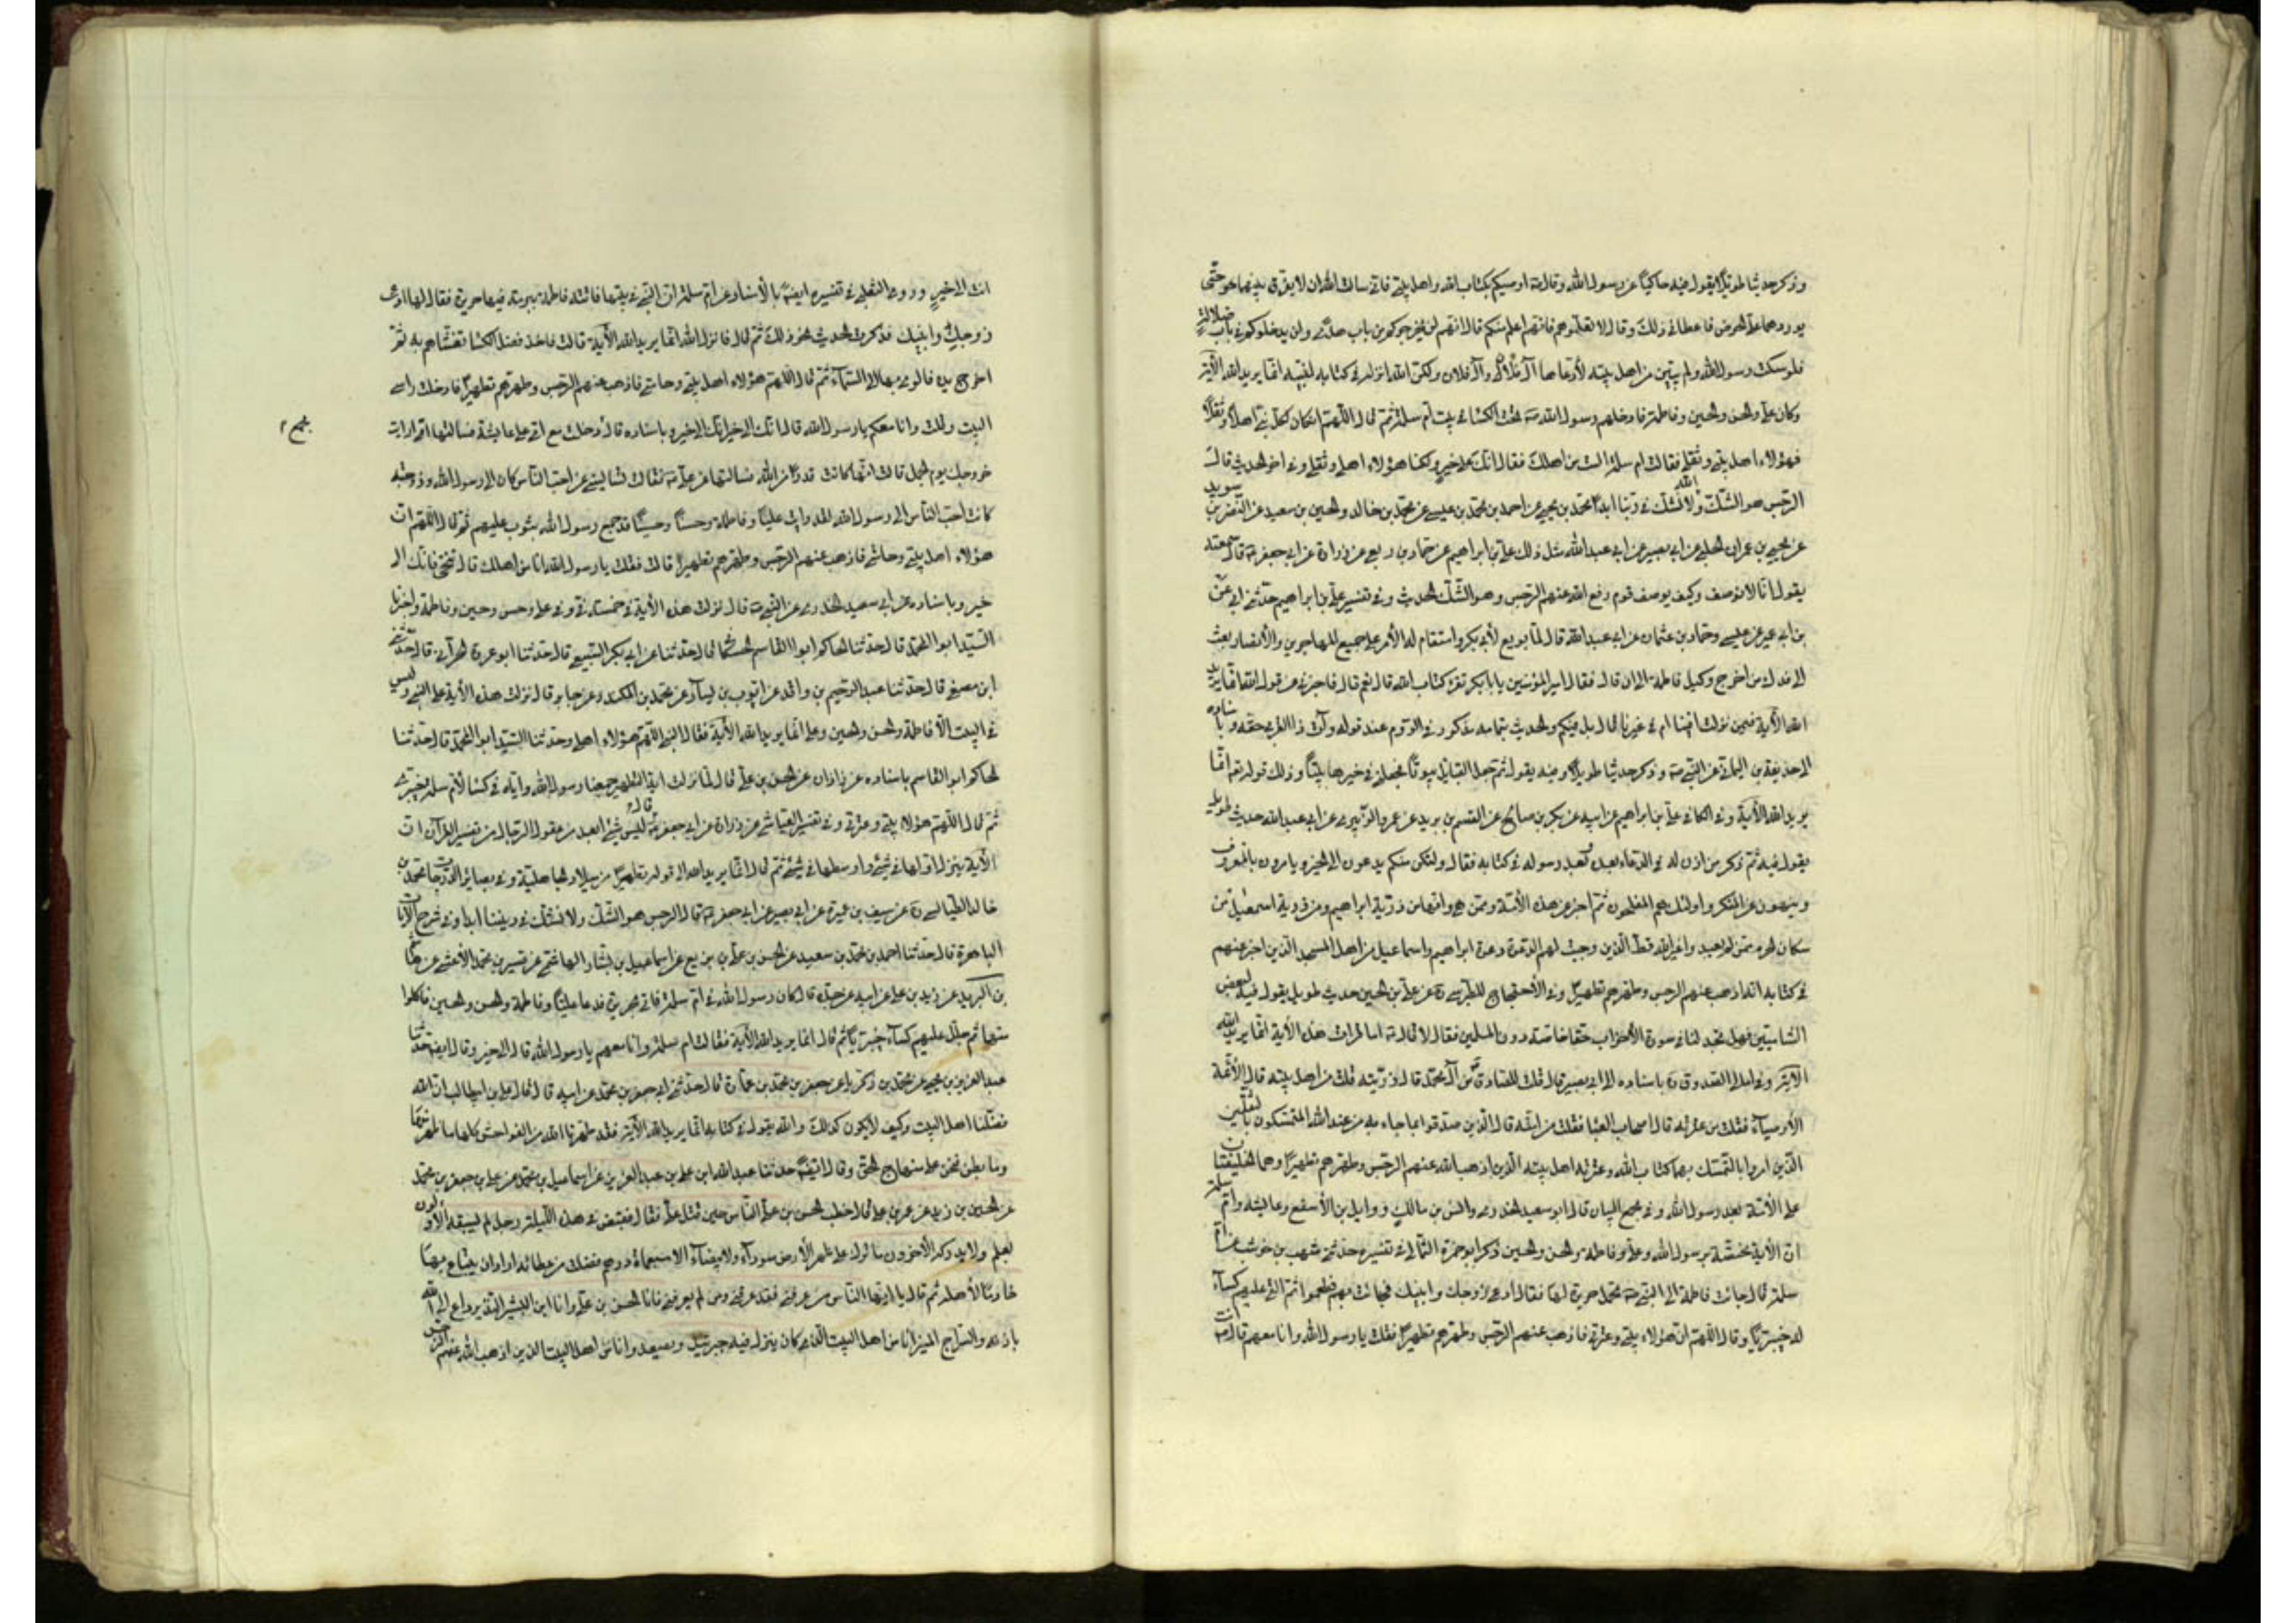 وذكر حديثا طويلا يقول فيه حاكيا عن رسول الله وقال ص اوصيكم بكتاب الله واهل بيتي فاني سالت الله ان لا يفرق بينهما حتى
يوردهما على الحوض فاعطاني ذلك وقال لا تعلموهم فانهم اعلم منكم قال انهم لن يخرجوكم من باب هدى ولن يدخلوكم في باب ضلالة
فلو سكت رسول الله ولم يبين من اهل بيته لادعاها آل فلان وآل فلان ولكن الله انزله في كتابه لنبيه انما يريد الله الآية
وكان علي والحسن والحسين وفاطمة فادخلهم رسول الله ص تحت الكساء في بيت ام سلمة ثم قال اللهم ان لكل نبي اهلا وثقلا
فهؤلاء اهل بيتي وثقلي فقالت ام سلمة الست من اهلك فقال انك على خير ولكن هؤلاء اهلي وثقلي وفي اخر الحديث قال
الرجس هو الشك والله لا نشك في ربنا ابدا محمد بن يحيى عن احمد بن محمد بن عيسى عن محمد بن خالد والحسين بن سعيد عن النضر بن سويد
عن يحيى بن عمران الحلبي عن ابي بصير عن ابي عبد الله مثل ذلك علي بن ابراهيم عن حماد بن ربعي عن زرارة عن ابي جعفر ع قال سمعته
يقول انا لا نوصف وكيف يوصف قوم رفع الله عنهم الرجس وهو الشك الحديث وفي تفسير علي بن ابراهيم حدثني ابي عن
بن ابي عمير عن عيسى وحماد بن عثمان عن ابي عبد الله قال لما بويع لابي بكر واستقام له الامر على جميع المهاجرين والانصار بعث
الى فدك من اخرج وكيل فاطمة الى ان قال فقال امير المؤمنين يا بابكر تقرء كتاب الله قال نعم قال فاخبرني عن قول الله انما يريد
الله الآية فيمن نزلت افينا ام في غيرنا قال بل فيكم والحديث بتمامه مذكور في الروم عند قوله وآت ذا القربى حقه وباسناده
الى حذيفة بن اليمان عن النبي ص وذكر حديثا طويلا وفيه يقول ثم جعل القبائل بيوتا فجعلني في خيرها بيتا وذلك قوله تعم انما
يريد الله الآية وفي الكافي علي بن ابراهيم عن ابيه عن بكر بن صالح عن القسم بن بريد عن عمرو الزبيري عن ابي عبد الله حديث طويل
يقول فيه ثم ذكر من اذن له في الدعاء بعده وبعد رسوله في كتابه فقال ولتكن منكم يدعون الى الخير ويامرون بالمعروف
وينهون عن المنكر واولئك هم المفلحون ثم اخبر عن هذه الامة وممن هي وانها من ذرية ابراهيم ومن ذرية اسمعيل من
سكان الحرم ممن لم يعبد واغير الله قط الذين وجبت لهم الدعوة دعوة ابراهيم واسماعيل من اهل المسجد الذين اخبر عنهم
في كتابه انه اذهب عنهم الرجس وطهرهم تطهيرا وفي الاحتجاج للطبرسي ره عن علي بن الحسين حديث طويل يقول فيه لبعض
الشاميين فهل تجد لنا في سورة الاحزاب حقا خاصة دون المسلمين فقال لا قال ع اما قرات هذه الآية انما يريد الله
الآية وفي امالي الصدوق ره باسناده الى ابي بصير قال قلت للصادق من آل محمد قال ذريته قلت من اهل بيته قال الائمة
الاوصياء فقلت من عترته قال اصحاب العبا فقلت من امته قال الذين صدقوا بما جاء به من عند الله المتمسكون بالثقلين
الذين امروا بالتمسك بهما كتاب الله وعترته اهل بيته الذين اذهب الله عنهم الرجس وطهرهم تطهيرا وهما الخليفتان
على الامة بعد رسول الله وفي مجمع البيان قال ابو سعيد الخدري وانس بن مالك ووايل بن الاسقع وعايشة وام سلمة
ان الآية مختصة برسول الله وعلي وفاطمة والحسن والحسين ذكر ابو حمزة الثمالي في تفسيره حدثني شهب بن حوشب عن ام
سلمة قال جائت فاطمة الى النبي ص تحمل حريرة لها فقال ادعي زوجك وابنيك فجائت بهم فطعموا ثم القى عليهم كساء
له خيبريا وقال اللهم ان هؤلاء بيتي وعترتي فاذهب عنهم الرجس وطهرهم تطهيرا فقلت يا رسول الله وانا معهم قال انت
انت الى خير وروى الثعلبي في تفسيره ايضا بالاسناد عن ام سلمة ان النبي في بيتها فاتته فاطمة ببرمة فيها حريرة فقال لها ادعي
زوجك وابنيك فذكرت الحديث نحو ذلك ثم قال فانزل الله انما يريد الله الآية قالت فاخذ فضل الكساء فغشاهم به ثم
اخرج يده فالوى بها الى السماء ثم قال اللهم هؤلاء اهل بيتي وحامتي فاذهب عنهم الرجس وطهرهم تطهيرا فادخلت راسي
البيت وقلت وانا معكم يا رسول الله قال انك الى خير انك الى خير وباسناده قال دخلت مع امي على عايشة فسالتها امي ارايت
خروجك يوم الجمل قالت انها كانت قدرا من الله فسالتها عن علي ع فقالت تساليني عن احب الناس كان الى رسول الله وزوجته
كانت احب الناس الى رسول الله لقد رايت عليا وفاطمة وحسنا وحسينا قد جمع رسول الله بثوب عليهم ثم قال اللهم ان
هؤلاء اهل بيتي وحامتي فاذهب عنهم الرجس وطهرهم تطهيرا قالت فقلت يا رسول الله انا من اهلك قال تنحي فانك الى
خير وباسناده عن ابي سعيد الخدري عن النبي ص قال نزلت هذه الآية في خمسة في وفي علي وحسن وحسين وفاطمة واخبرنا
السيد ابو الحمد قال حدثنا الحاكم ابو القاسم الحسكاني قال حدثنا عن ابي بكر السبيعي قال حدثنا ابو عروة الحراني قال حدثني
ابن مصغي قال حدثنا عبد الرحيم بن واقد عن ايوب بن ليسار عن محمد بن المكندر عن جابر قال نزلت هذه الآية على النبي وليس
في البيت الا فاطمة والحسن والحسين وعلي انما يريد الله الآية فقال النبي اللهم هؤلاء اهلي وحدثنا السيد ابو الحمد قال حدثنا
الحاكم ابو القاسم باسناده عن زاذان عن الحسن بن علي قال لما نزلت اية التطهير جمعنا رسول الله واياه في كساء لام سلمة خيبري
ثم قال اللهم هؤلاء بيتي وعترتي وفي تفسير العياشي عن زرارة عن ابي جعفر ع قال ليس شيء ابعد من عقول الرجال من تفسير القرآن ان
الآية ينزل اولها في شيء واوسطها في شيء ثم قال انما يريد الله الى قوله تطهيرا من ميلاد الجاهلية وفي بصائر الدرجات محمد بن
خالد الطيالسي ره عن سيف بن عميرة عن ابي بصير عن ابي جعفر ع قال الرجس هو الشك ولا نشك في ديننا ابدا وفي شرح الآيات
الباهرة قال حدثنا احمد بن محمد بن سعيد عن الحسن بن علي بن بزيع عن اسماعيل بن بشار الهاشمي عن قتيبر بن محمد الاعشى عن هاشم
بن البريد عن زيد بن علي عن ابيه عن جده قال كان رسول الله في ام سلمة فاتي بحريرة فدعا عليا وفاطمة والحسن والحسين فاكلوا
منها ثم جلل عليهم كساء خيبريا ثم قال انما يريد الله الآية فقالت ام سلمة وانا معهم يا رسول الله قال الى خير وقال ايضا حدثنا
عبد العزيز بن يحيى عن محمد بن زكريا عن جعفر بن محمد بن عمارة قال حدثني ابي جعفر بن محمد عن ابيه قال قال علي بن ابي طالب ان الله
فضلنا اهل البيت وكيف لا يكون كذلك والله يقول في كتابه انما يريد الله الآية فقد طهرنا الله من الفواحش كلها ما ظهر منها
وما بطن فنحن على منهاج الحق وقال ايضا حدثنا عبد الله ابن علي بن عبد العزيز عن اسماعيل بن محمد عن علي بن جعفر بن محمد
عن الحسين بن زيد عن عمر بن علي قال خطب الحسن بن علي الناس حين قتل علي فقال قبض في هذه الليلة رجل لم يسبقه الاولون
بعلم ولا يدركه الآخرون ما ترك على ظهر الارض سوداء ولا بيضاء الا سبعماة درهم فضلت من عطائه اراد ان يبتاع بها
خادما لاهله ثم قال يا ايها الناس من عرفني فقد عرفني ومن لم يعرفني فانا الحسن بن علي وانا ابن البشير النذير داع الى الله
باذنه والسراج المنير انا من اهل البيت الذي كان ينزل فيه جبرئيل ويصعد وانا من اهل البيت الذين اذهب الله عنهم الرجس